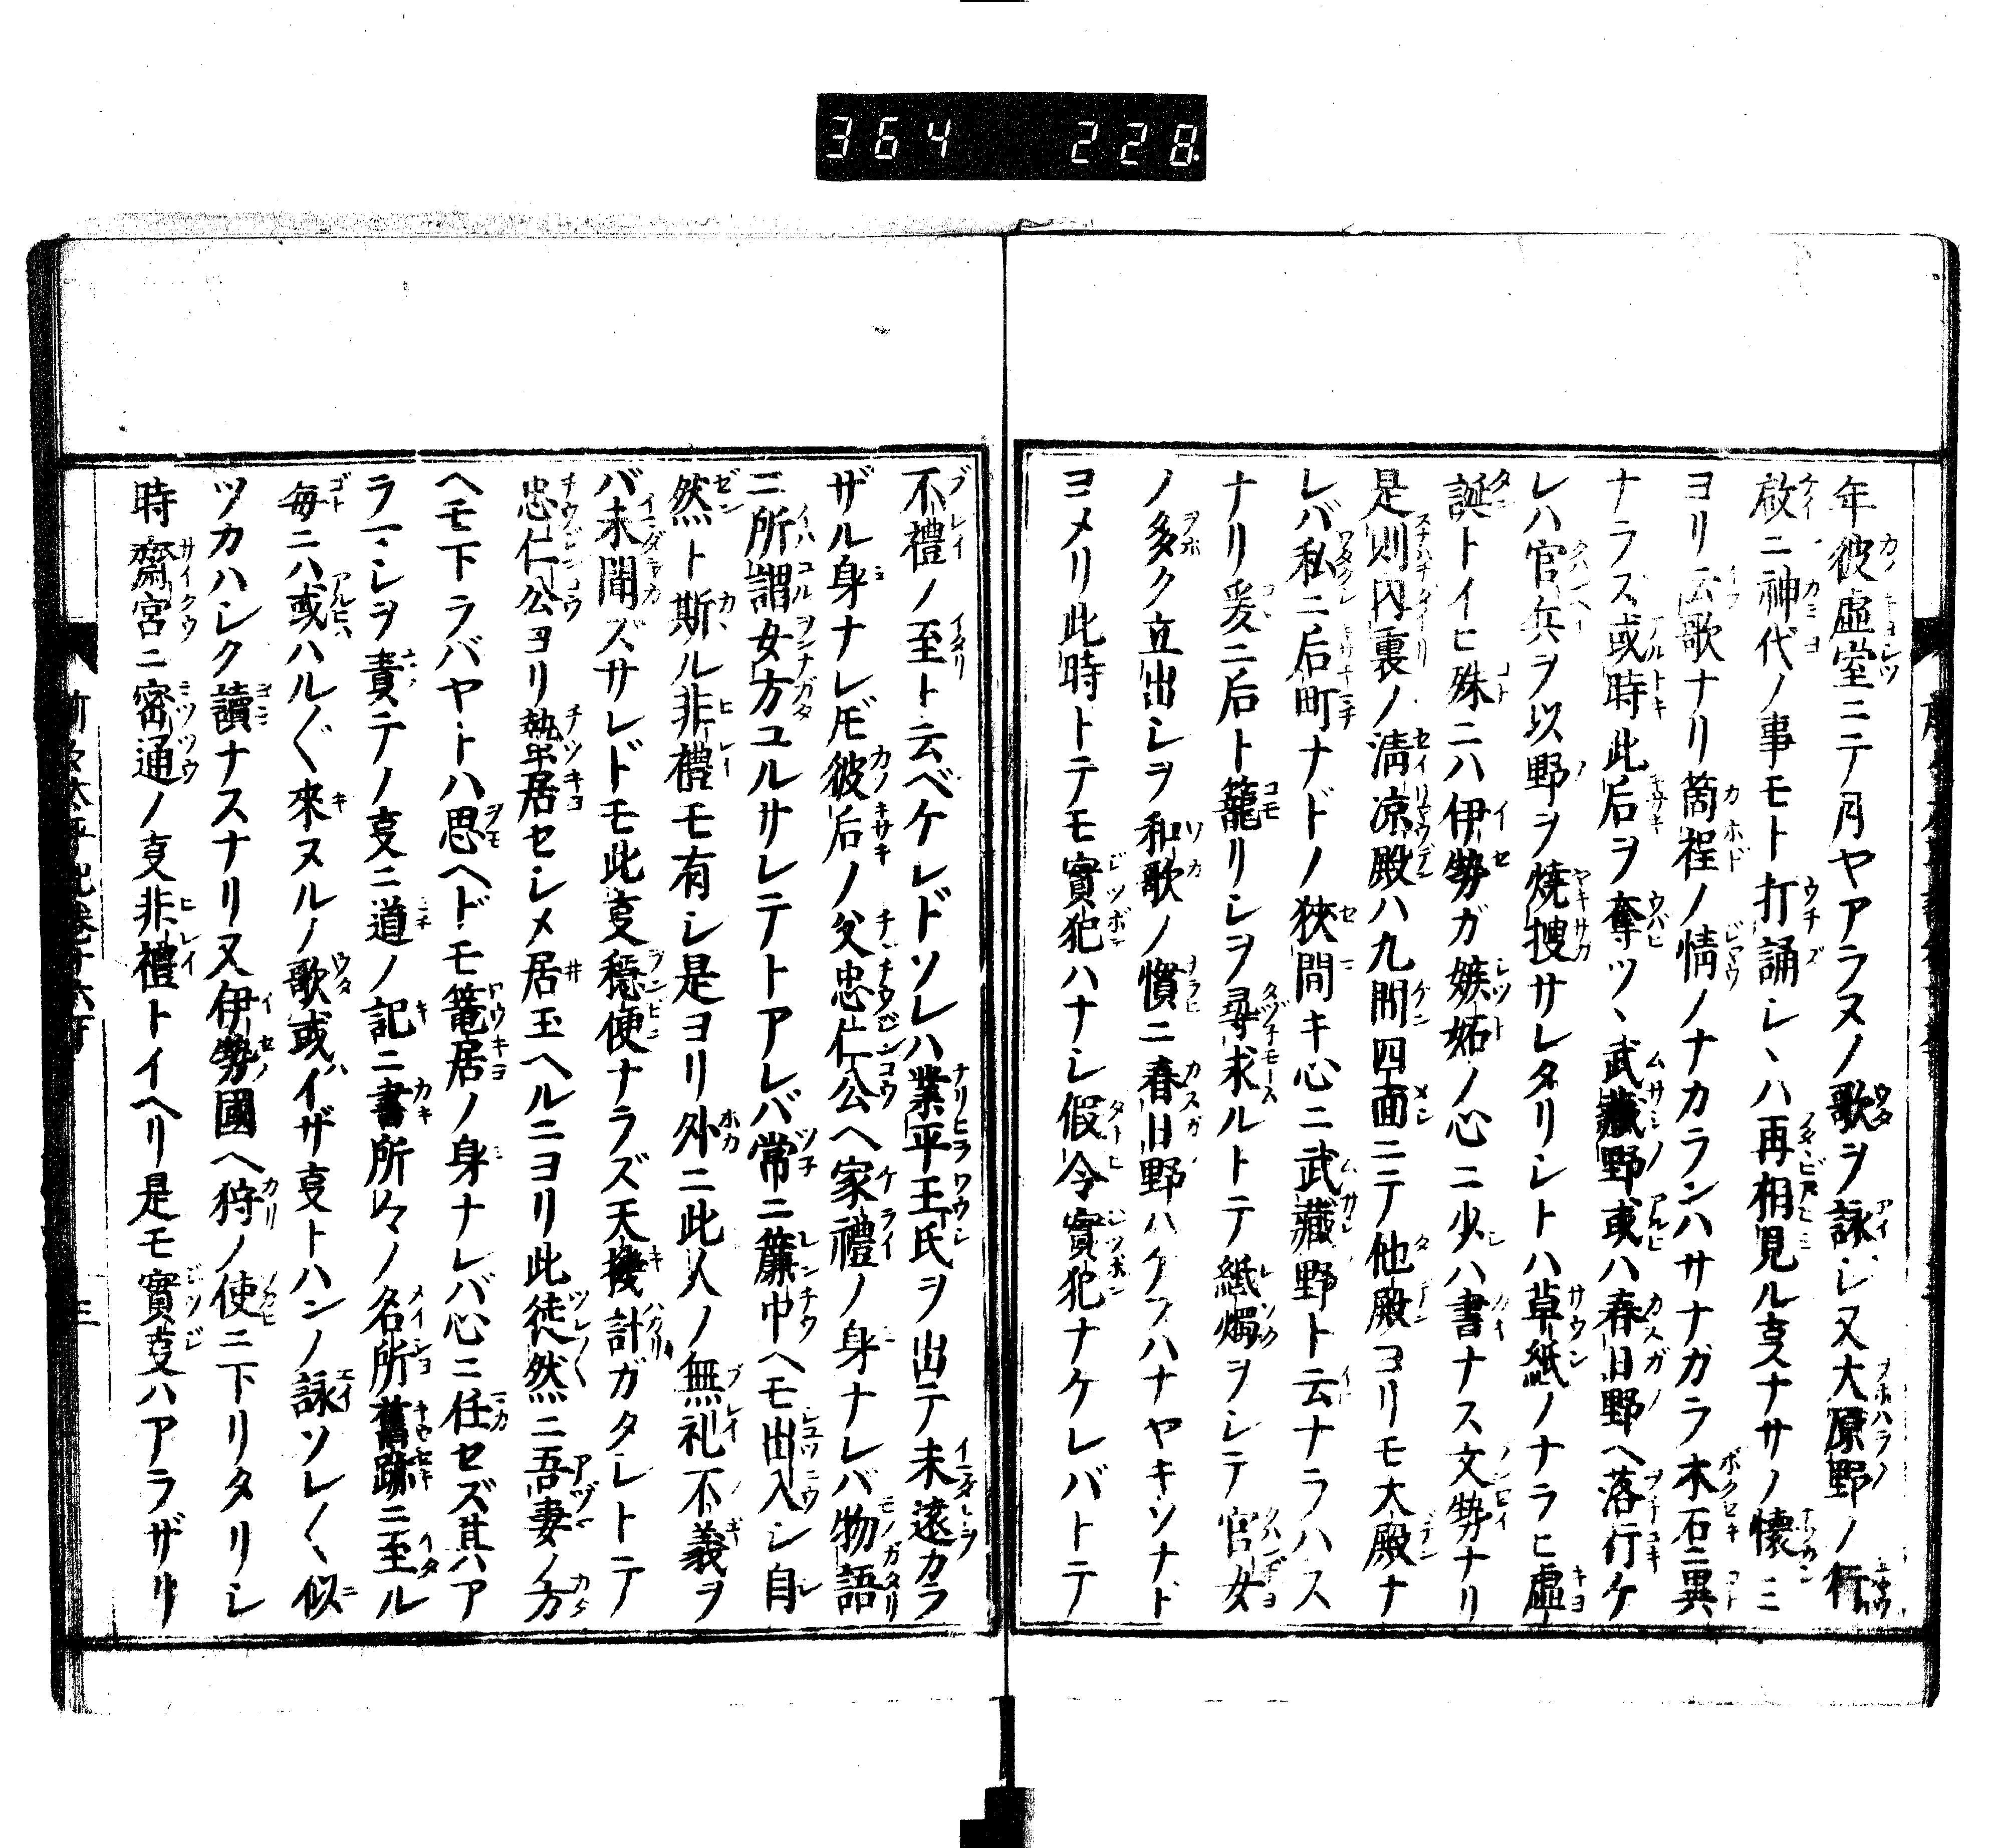 364 228
年彼虚堂ニテ月ヤアラヌノ歌ヲ詠シ又大原野ノ行
啟ニ神代ノ事モト打誦シヽハ再相見ル𫝆ナサノ懐ニ
ヨリ云歌ナリ箇程ノ情ノナカランハサナガラ木石ニ異
ナラズ或時此后ヲ奪ツヽ武藏野或ハ春日野ヘ落行ケ
レハ官兵ヲ以野ヲ燒捜サレタリシトハ草紙ノナラヒ虚
誕トイヒ殊ニハ伊勢ガ嫉妬ノ心ニ少ハ書ナス文勢ナリ
是則内裏ノ清凉殿ハ九間四面ニテ他殿ヨリモ大殿ナ
レバ私ニ后町ナドノ狹間キ心ニ武藏野ト云ナラハス
ナリ爰ニ后ト籠リシヲ尋求ルトテ紙燭ヲシテ官女
ノ多ク立出シヲ和歌ノ慣ニ春日野ハケフハナヤキソナド
ヨメリ此時トテモ實犯ハナシ假令實犯ナケレバトテ
不禮ノ至ト云ベケレドソレハ業平王氏ヲ出テ未遠カラ
ザル身ナレ𪜈彼后ノ父忠仁公ヘ家禮ノ身ナレバ物語
ニ所謂女方ユルサレテトアレバ常ニ簾中ヘモ出入シ自
然ト斯ル非禮モ有シ是ヨリ外ニ此人ノ無礼不義ヲ
バ未聞ズサレドモ此叓穏便ナラズ天機計ガタシトテ
忠仁公ヨリ蟄居セシメ居玉ヘルニヨリ此徒然ニ吾妻ノ方
ヘモ下ラバヤトハ思ヘドモ篭居ノ身ナレバ心ニ任セズ其ア
ラマシヲ責テノ叓ニ道ノ記ニ書所々ノ名所舊跡ニ至ル
毎ニハ或ハルゞ來ヌルノ歌或イザ叓トハンノ詠ソレ〳〵似
ツカハシク讀ナスナリ又伊勢國ヘ狩ノ使ニ下リタリシ
時齋宮ニ密通ノ叓非禮トイヘリ是モ實叓ハアラザリ
三